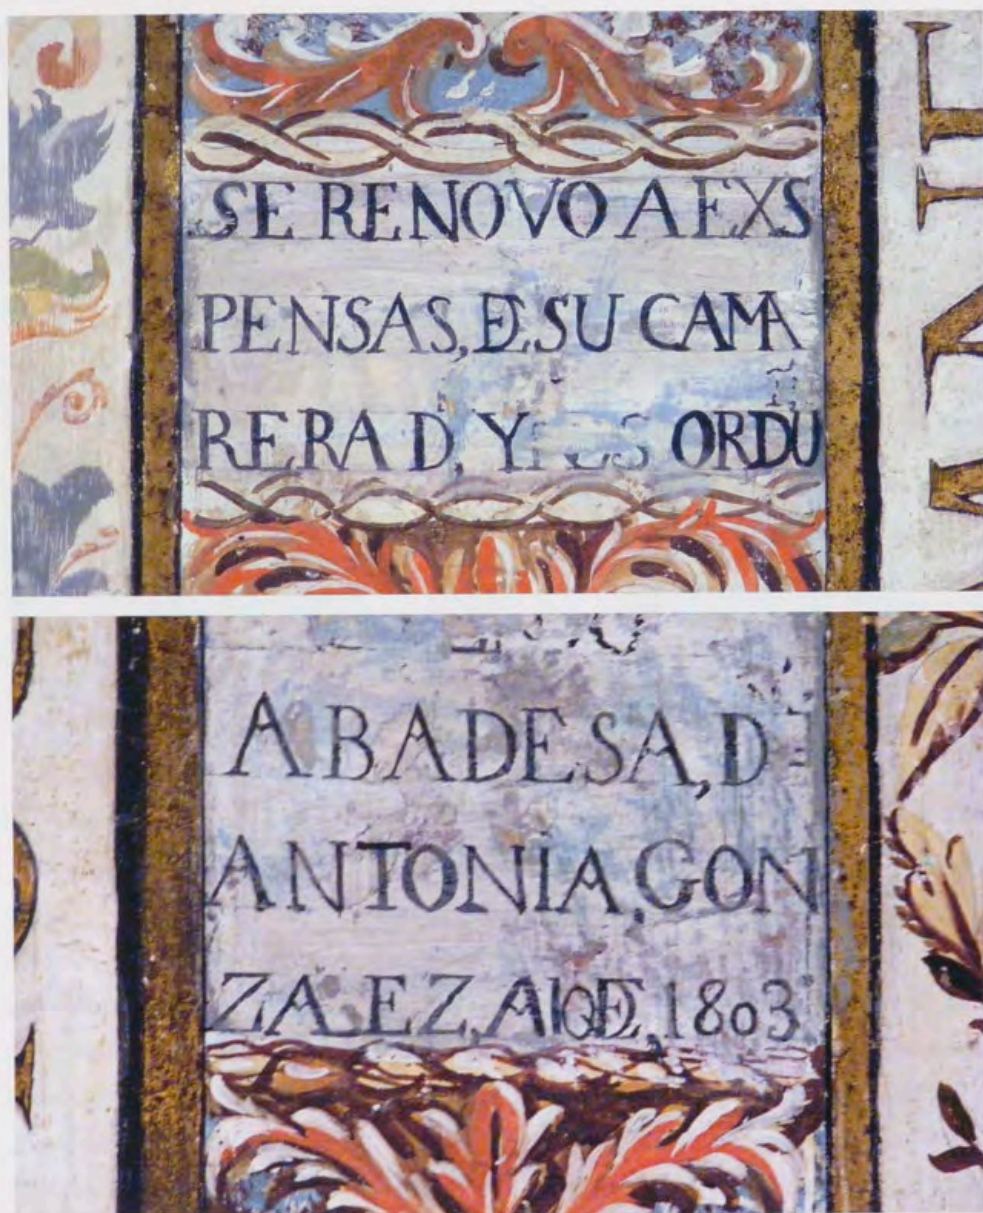 SE RENOVO A EXS
PENSAS, DE SU CAMA
RERA D, ORDU
ABADESA, D
ANTONIA, GON
ZALEZ, AÑO DE, 1803